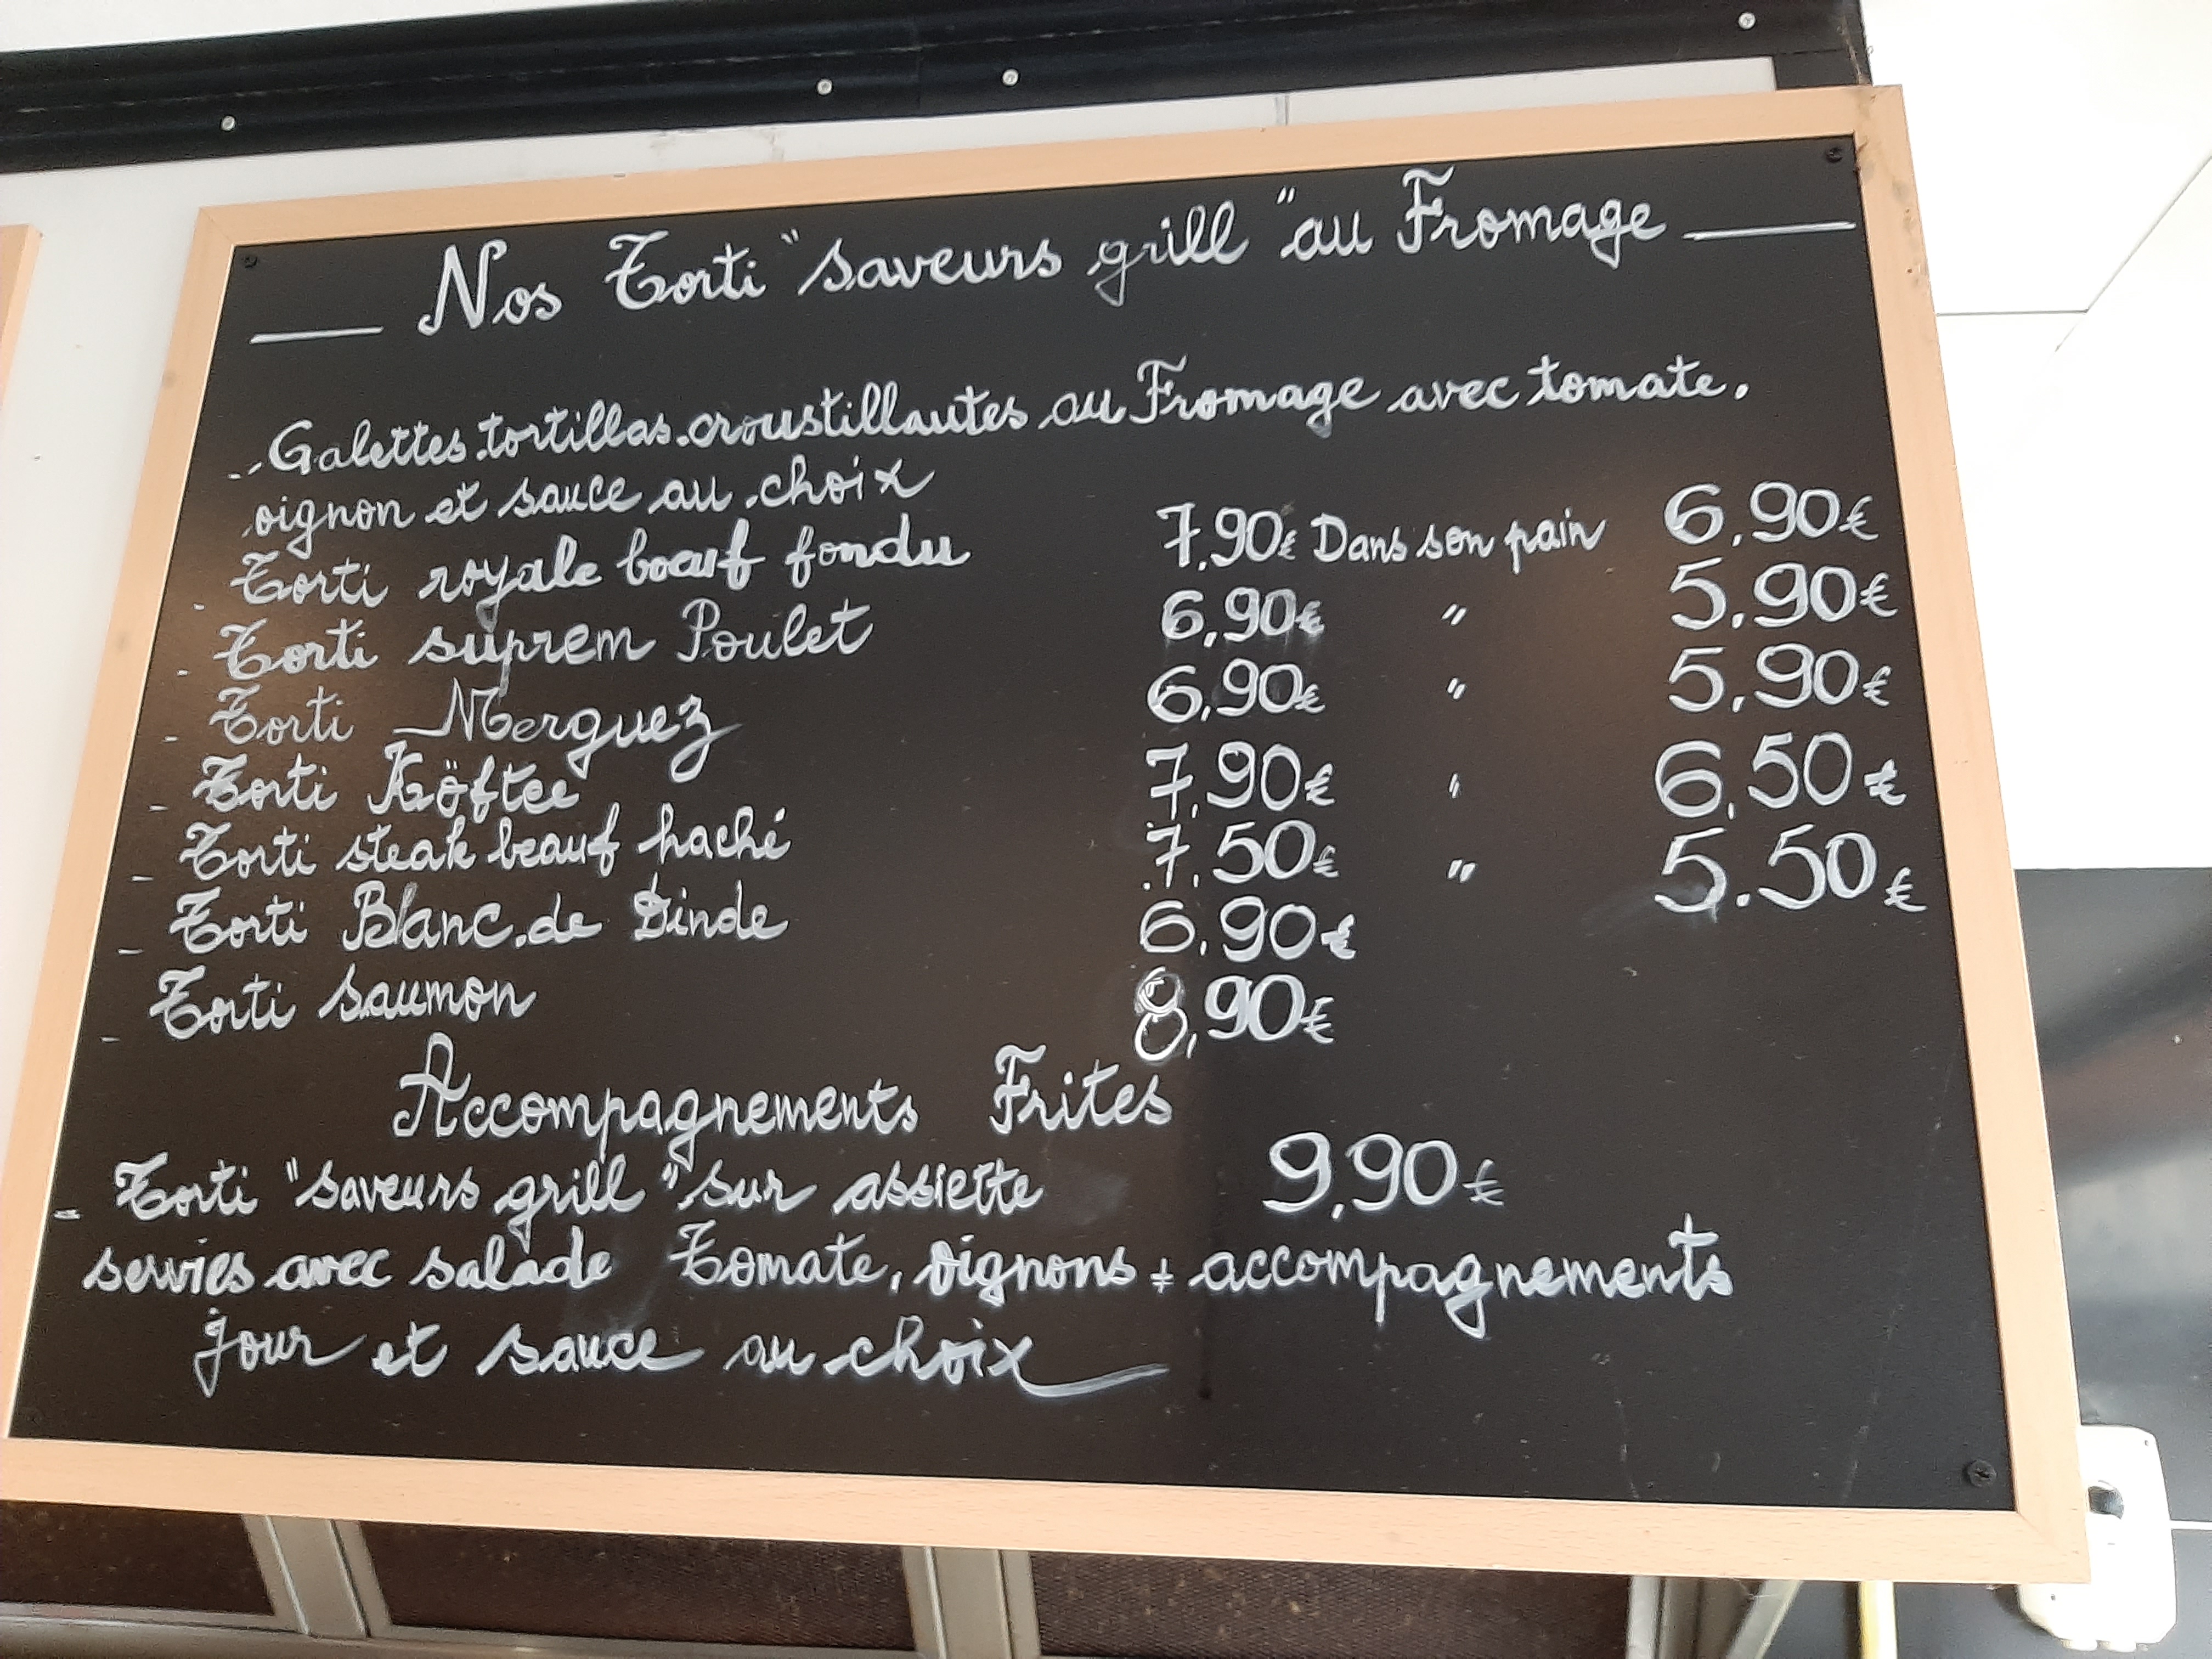 Nos Torti "saveurs grill" au Fromage
- Galettes tortillas croustillantes au Fromage avec tomate.
oignon et sauce au choix
- Torti royale bœuf fondu 7,90€ Dans son pain 6,90€
- Torti suprem Poulet 6,90€ " 5,90€
- Torti Merguez 6,90€ " 5,90€
- Torti Köftee 7,90€ " 6,50€
- Torti steak beauf haché 7,50€ " 5.50€
- Torti Blanc de Dinde 6,90€
- Torti saumon 8,90€
Accompagnements Frites
- Torti "saveurs grill" sur assiette 9,90€
servies avec salade Tomate, oignons + accompagnements
jour et sauce au choix